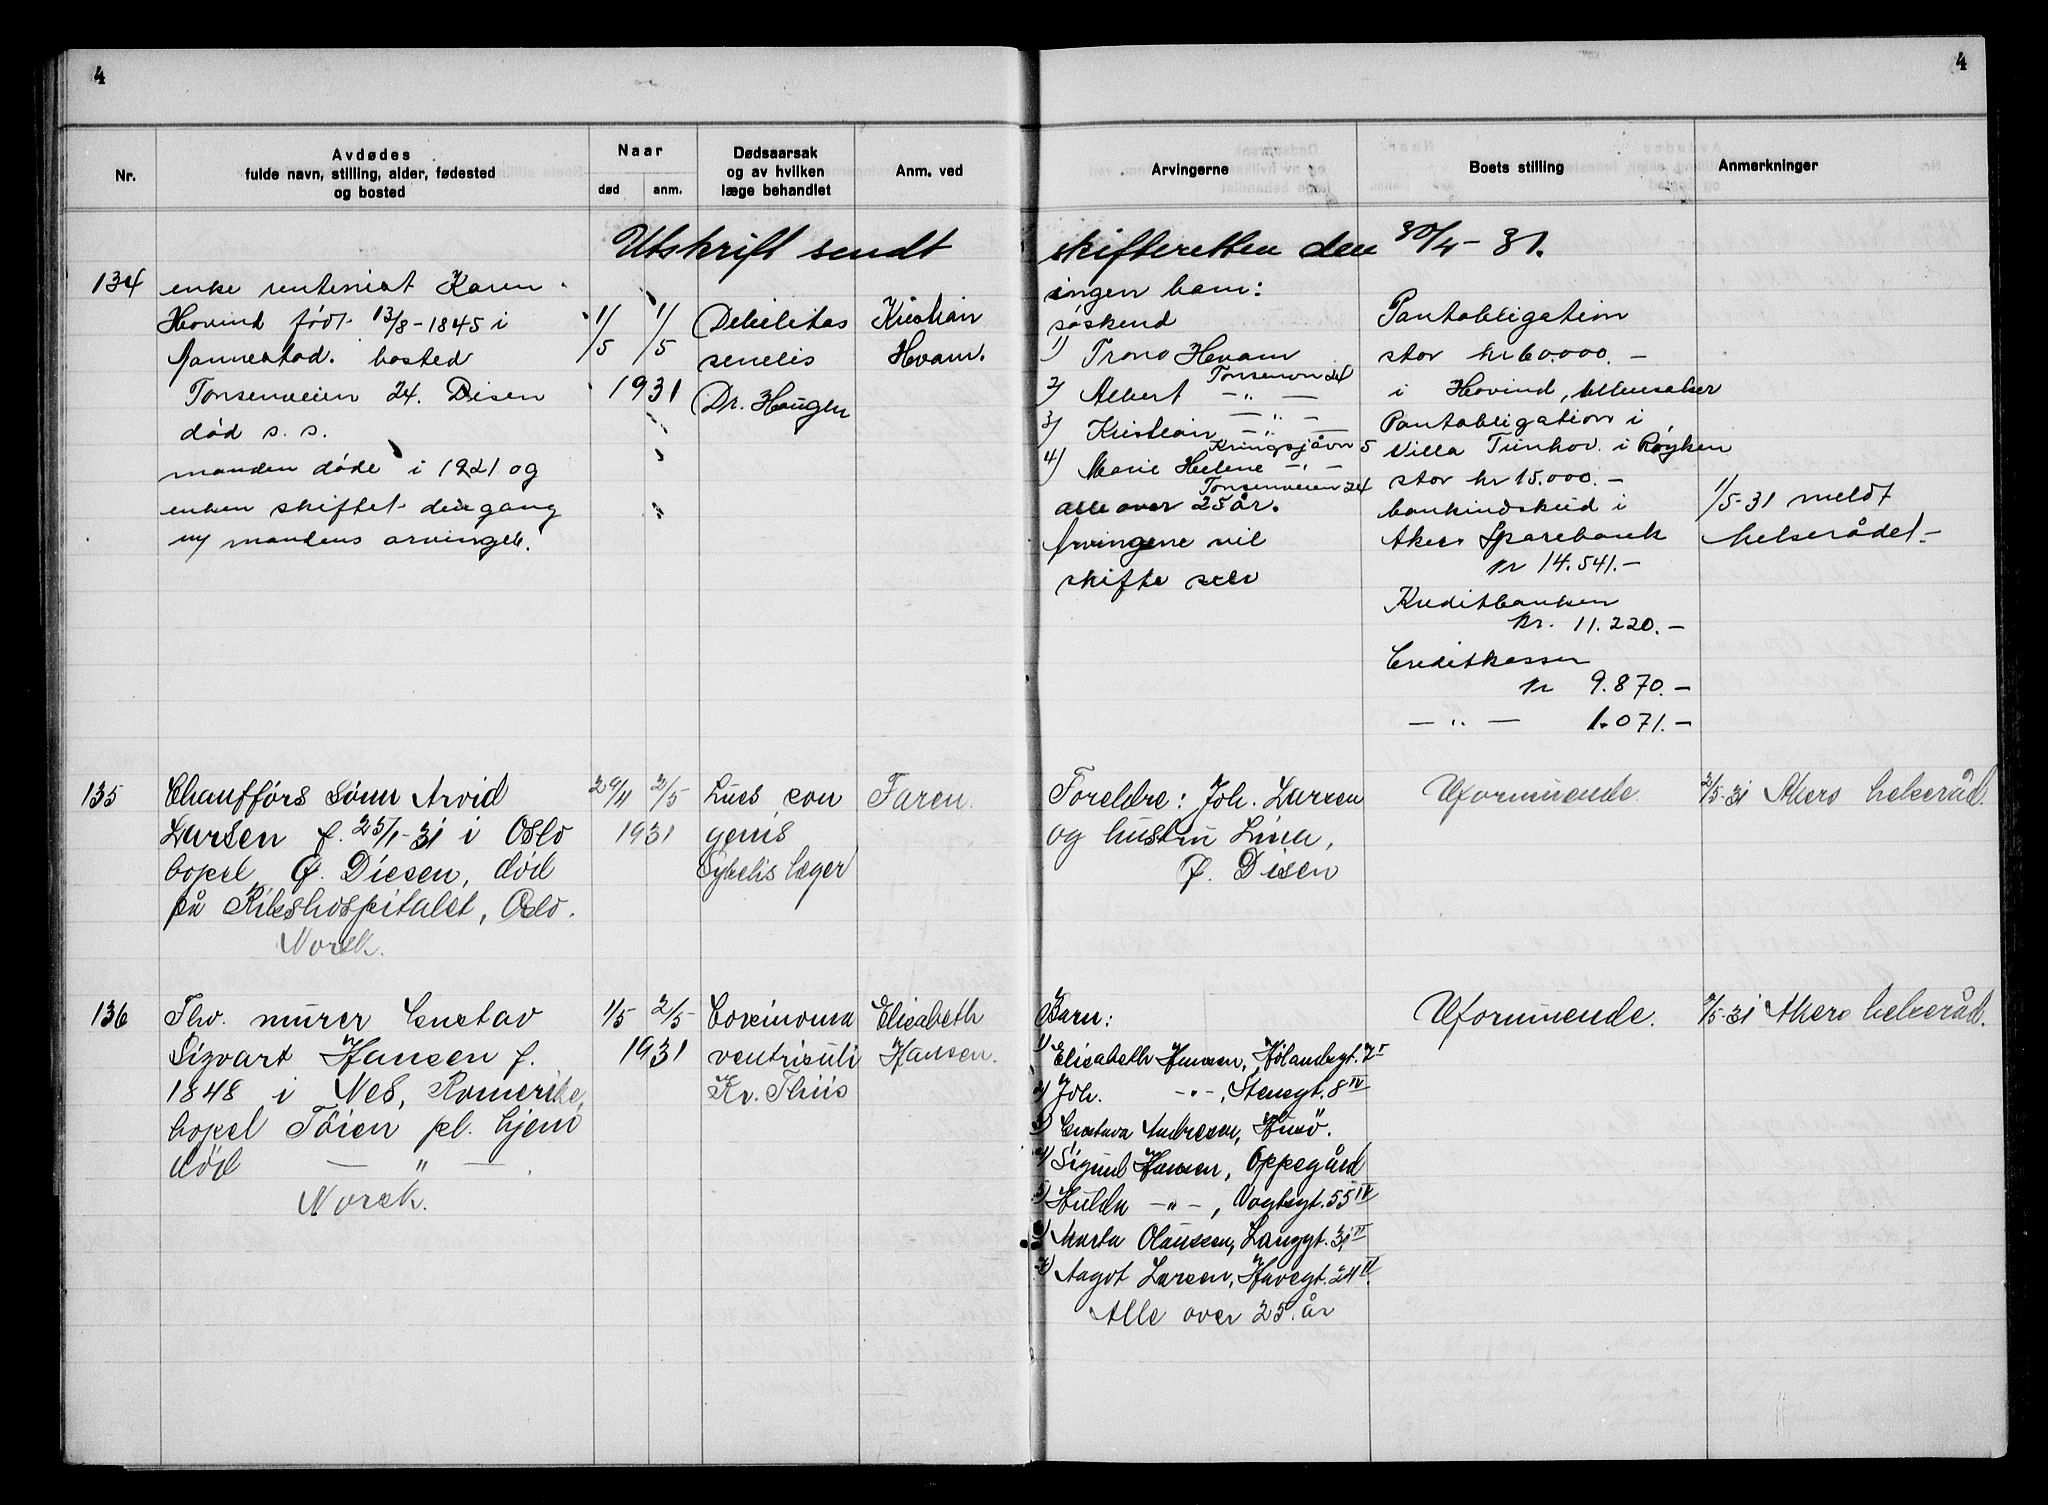 4
4
Nr.
Avdødes
fulde navn, stilling, alder, fødested
og bosted
Naar
død
anm.
Dødsaarsak
og av hvilken
læge behandlet
Anm. ved
Arvingerne
Boets stilling
Anmerkninger
Utskrift sendt skifteretten den 30/4-31.
134
enke rentenist Karen
Hovind født 13/8-1845 i
Nannestad. bosted
Tonsenveien 24. Disen
død s. s.
manden døde i 1921 og
enken skiftet dengang
m/ mandens arvinger.
1/5
1/5
1931
Debilitas
senilis
Dr. Haugen
Kristian
Hvam.
ingen barn:
søskend
1) Trono Hvam
Tonsenvn 24
2) Albert —„—
—„—
3) Kristian —„—
Kringsjåvn 5
4) Marie Helene —„—
Tonsenveien 24
alle over 25 år.
Arvingene vil
skifte selv
Pantobligation
stor kr 60.000.—
i Hovind, Ullensaker
Pantobligation i
Villa Tunhov. i Røyken
stor kr 15.000.—
bankindskud i
Akers Sparebank
kr 14.541.—
Kreditbanken
kr. 11.220.—
Creditkassen
kr 9.870.—
—„— 1.071.—
1/5-31 meldt
helserådet.—
135
Chaufførs sønn Arvid
Larsen f. 25/1-31 i Oslo
bopel Ø. Diesen, død
på Rikshospitalet, Oslo.
Norsk.
29/4
2/5
1931
Lues con
genis
læger
Faren.
Foreldre: Joh. Larsen
og hustru Lina,
Ø. Disen
Uformuende.
2/5-31 Akers helseråd.
136
Fhv. murer Gustav
Sigvart Hansen f.
1848 i Nes, Romerike,
bopel Tøien pl. hjem
død —„—.
Norsk.
1/5
2/5
1931
Carsinoma
ventriculi
Kr. Thiis
Elisabeth
Hansen.
Barn:
1) Elisabeth Hansen, Hølandsgt. 7 I
2) Joh. —„—, Stensgt. 8 IV
3) Gustava Andresen, Husö.
4) Sigurd Hansen, Oppegård
5) Hulda —„—, Vogtsgt. 55 IV
6) Marta Olaussen, Langgt. 31 II
7) Aagot Larsen, Havegt. 24 II.
Alle over 25 år
Uformuende.
2/5-31 Akers helseråd.